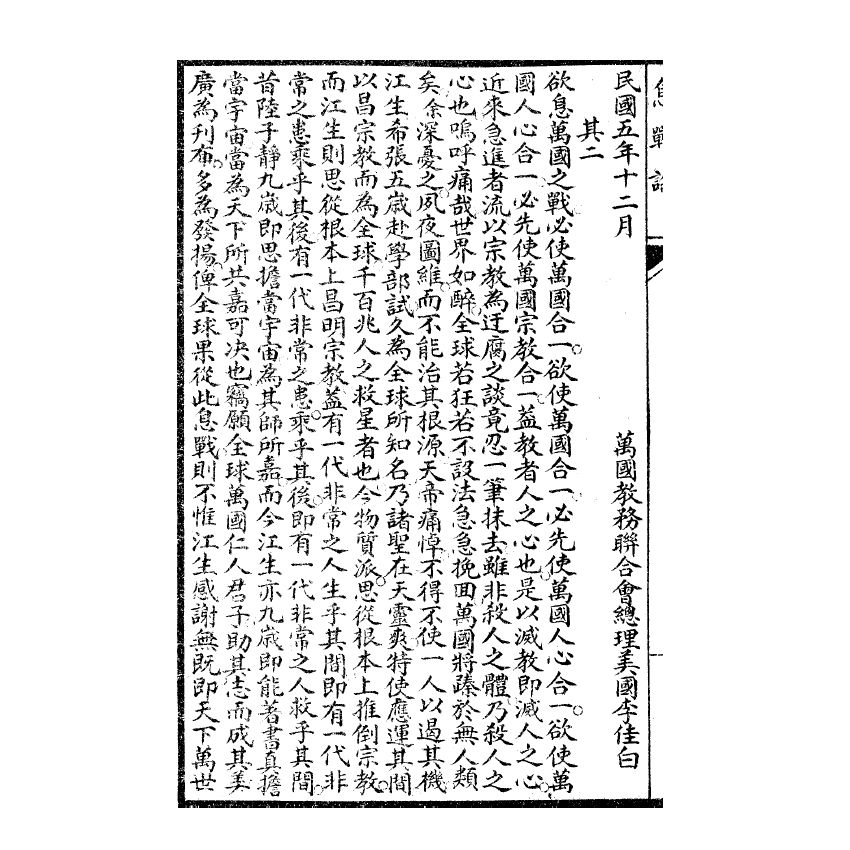 息戰論
民國五年十二月 萬國教務聯合會總理美國李佳白
其二
欲息萬國之戰必使萬國合一欲使萬國合一必先使萬國人心合一欲使萬
國人心合一必先使萬國宗教合一蓋教者人之心也是以滅教即滅人之心
近來急進者流以宗教為迂腐之談竟忍一筆抹去雖非殺人之體乃殺人之
心也嗚呼痛哉世界如醉全球若狂若不設法急急挽回萬國將蹟於無人類
矣余深憂之夙夜圖維而不能治其根源天帝痛悼不得不使一人以遏其機
江生希張五歲赴學部試久為全球所知名乃諸聖在天靈爽特使應運其間
以昌宗教而為全球千百兆人之救星者也今物質派思從根本上推倒宗教
而江生則思從根本上昌明宗教蓋有一代非常之人生乎其間即有一代非
常之患乘乎其後有一代非常之患乘乎其後即有一代非常之人救乎其間
昔陸子靜九歲即思擔當宇宙為其師所嘉而今江生亦九歲即能著書真擔
當宇宙當為天下所共嘉可決也竊願全球萬國仁人君子助其志而成其美
廣為刊布多為發揚俾全球果從此息戰則不惟江生感謝無既即天下萬世